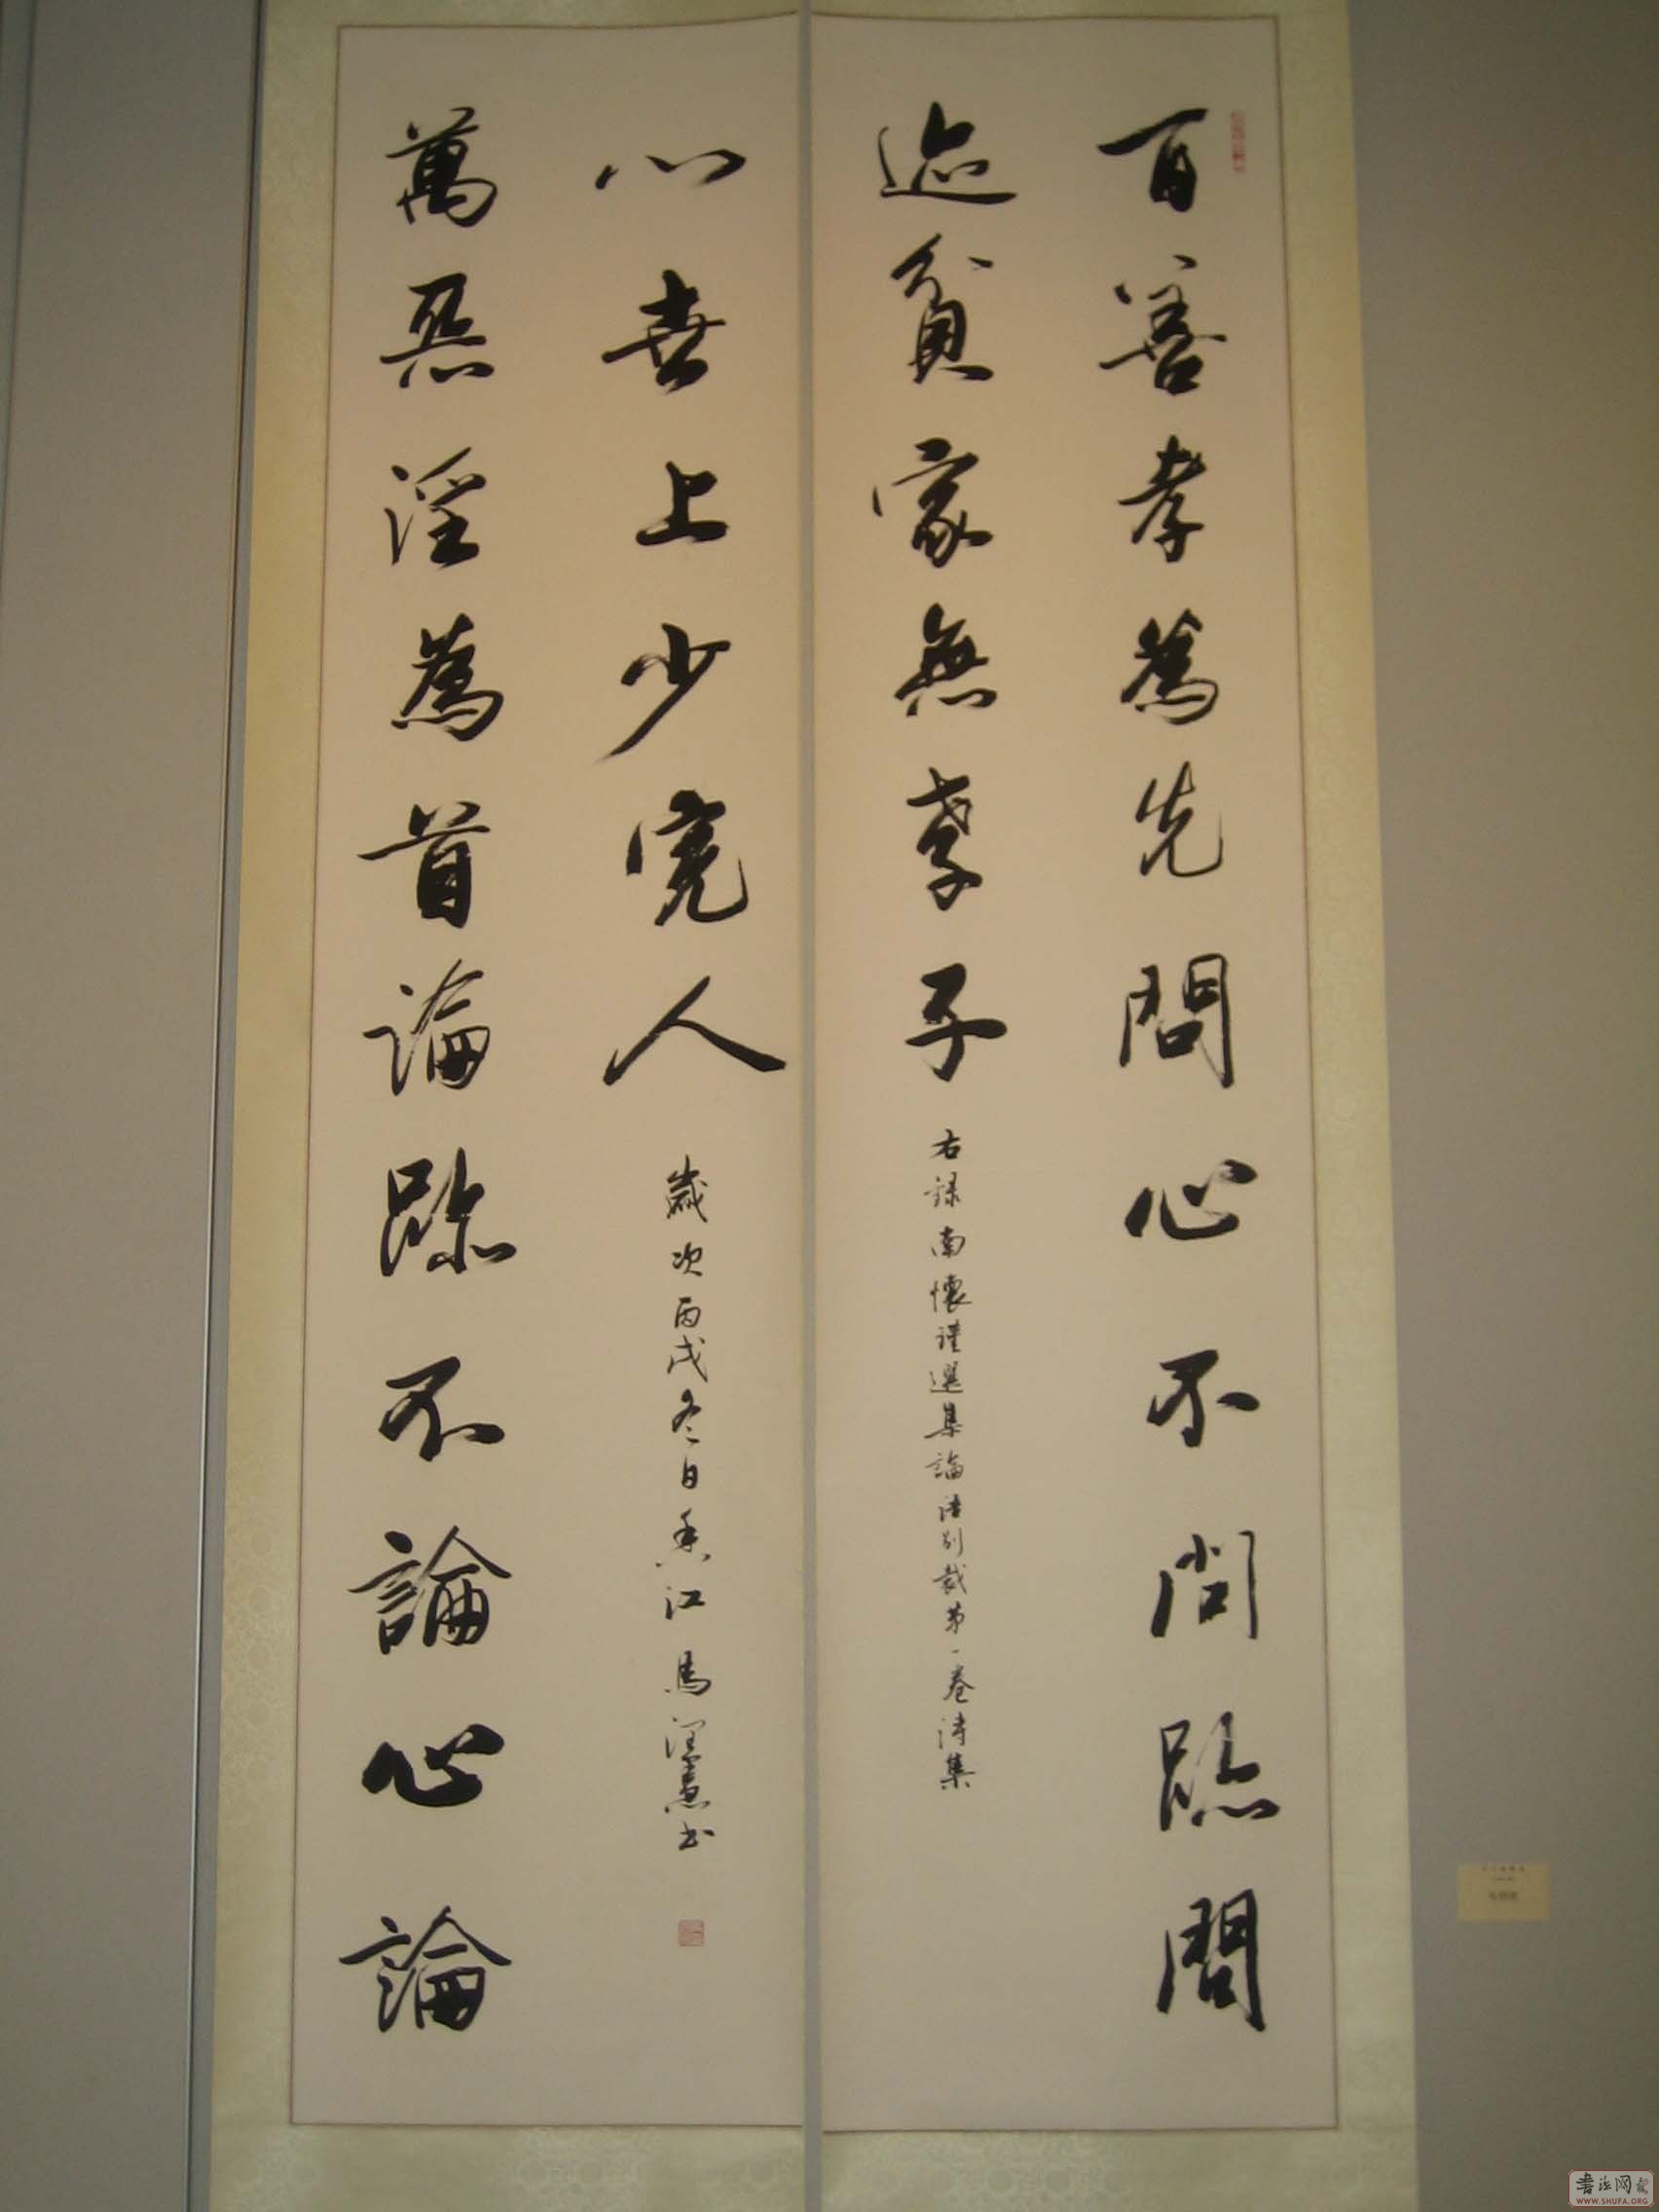 百善孝為先問心不問跡問
迹貧家無孝子
右錄南懷瑾選集論語別裁第一卷詩集
萬惡淫為首論跡不論心論
心世上少完人
歲次丙戌冬日香江馬憲書
書法网
WWW.SHUFA.ORG